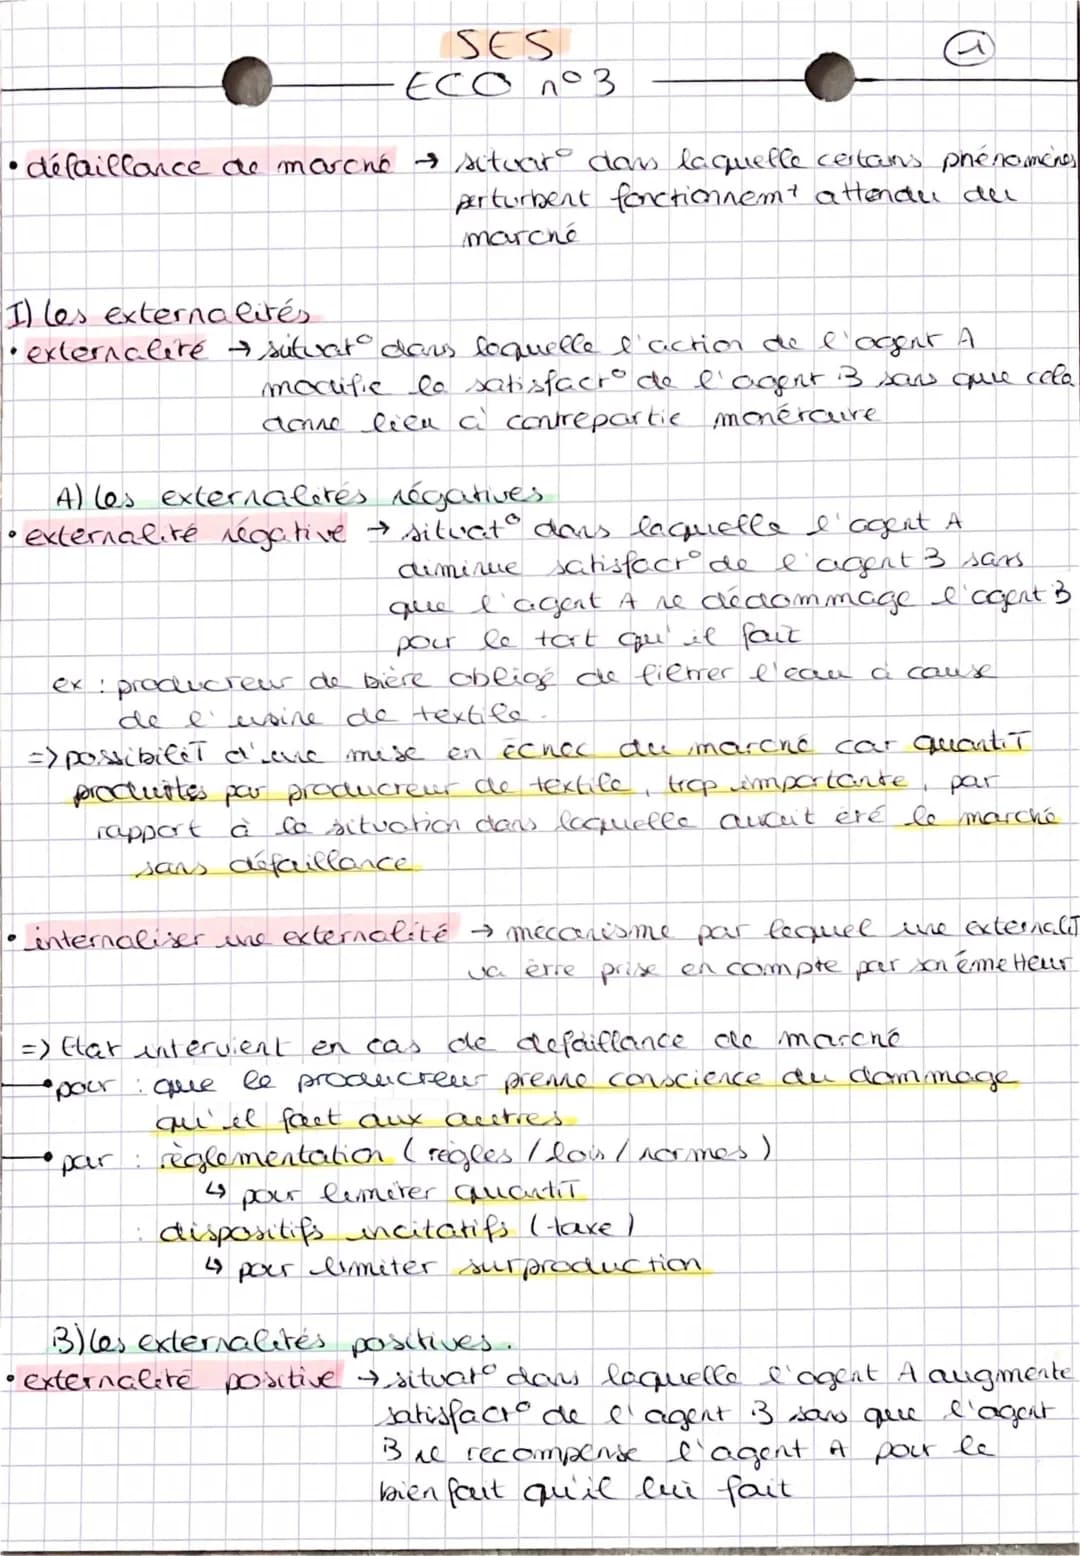 SES
1
ECO n°3
• défaillance de marché → situat° dans laquelle certains phénomènes
perturbent fonctionnemt attendu du
marché
I) les externalités
• externalité → situat° dans laquelle l'action de l'agent A
modifie la satisfact° de l'agent B sans que cela
donne lieu à contrepartie monétaire
A) les externalités négatives
• externalité négative → situat° dans laquelle l'agent A
diminue satisfact° de l'agent B sans
que l'agent A ne dédommage l'agent B
pour le tort qu'il fait
ex : producteur de bière obligé de filtrer l'eau à cause
de l'usine de textile.
=> possibiliT d'une mise en échec du marché car quantiT
produites par producteur de textile, trop importante, par
rapport à la situation dans laquelle aurait été le marché
sans défaillance
• internaliser une externalité → mécanisme par lequel une externaliT
va être prise en compte par son émetteur
=> Etat intervient en cas de defaillance de marché
• pour : que le producteur prenne conscience du dommage
qu'il fait aux autres
• par : règlementation (règles / lois / normes)
↳ pour limiter quantiT
: dispositifs incitatifs (taxe)
↳ pour limiter surproduction
B) les externalités positives.
• externalité positive → situat° dans laquelle l'agent A augmente
satisfact° de l'agent B sans que l'agent
B ne recompense l'agent A pour le
bienfait qu'il lui fait